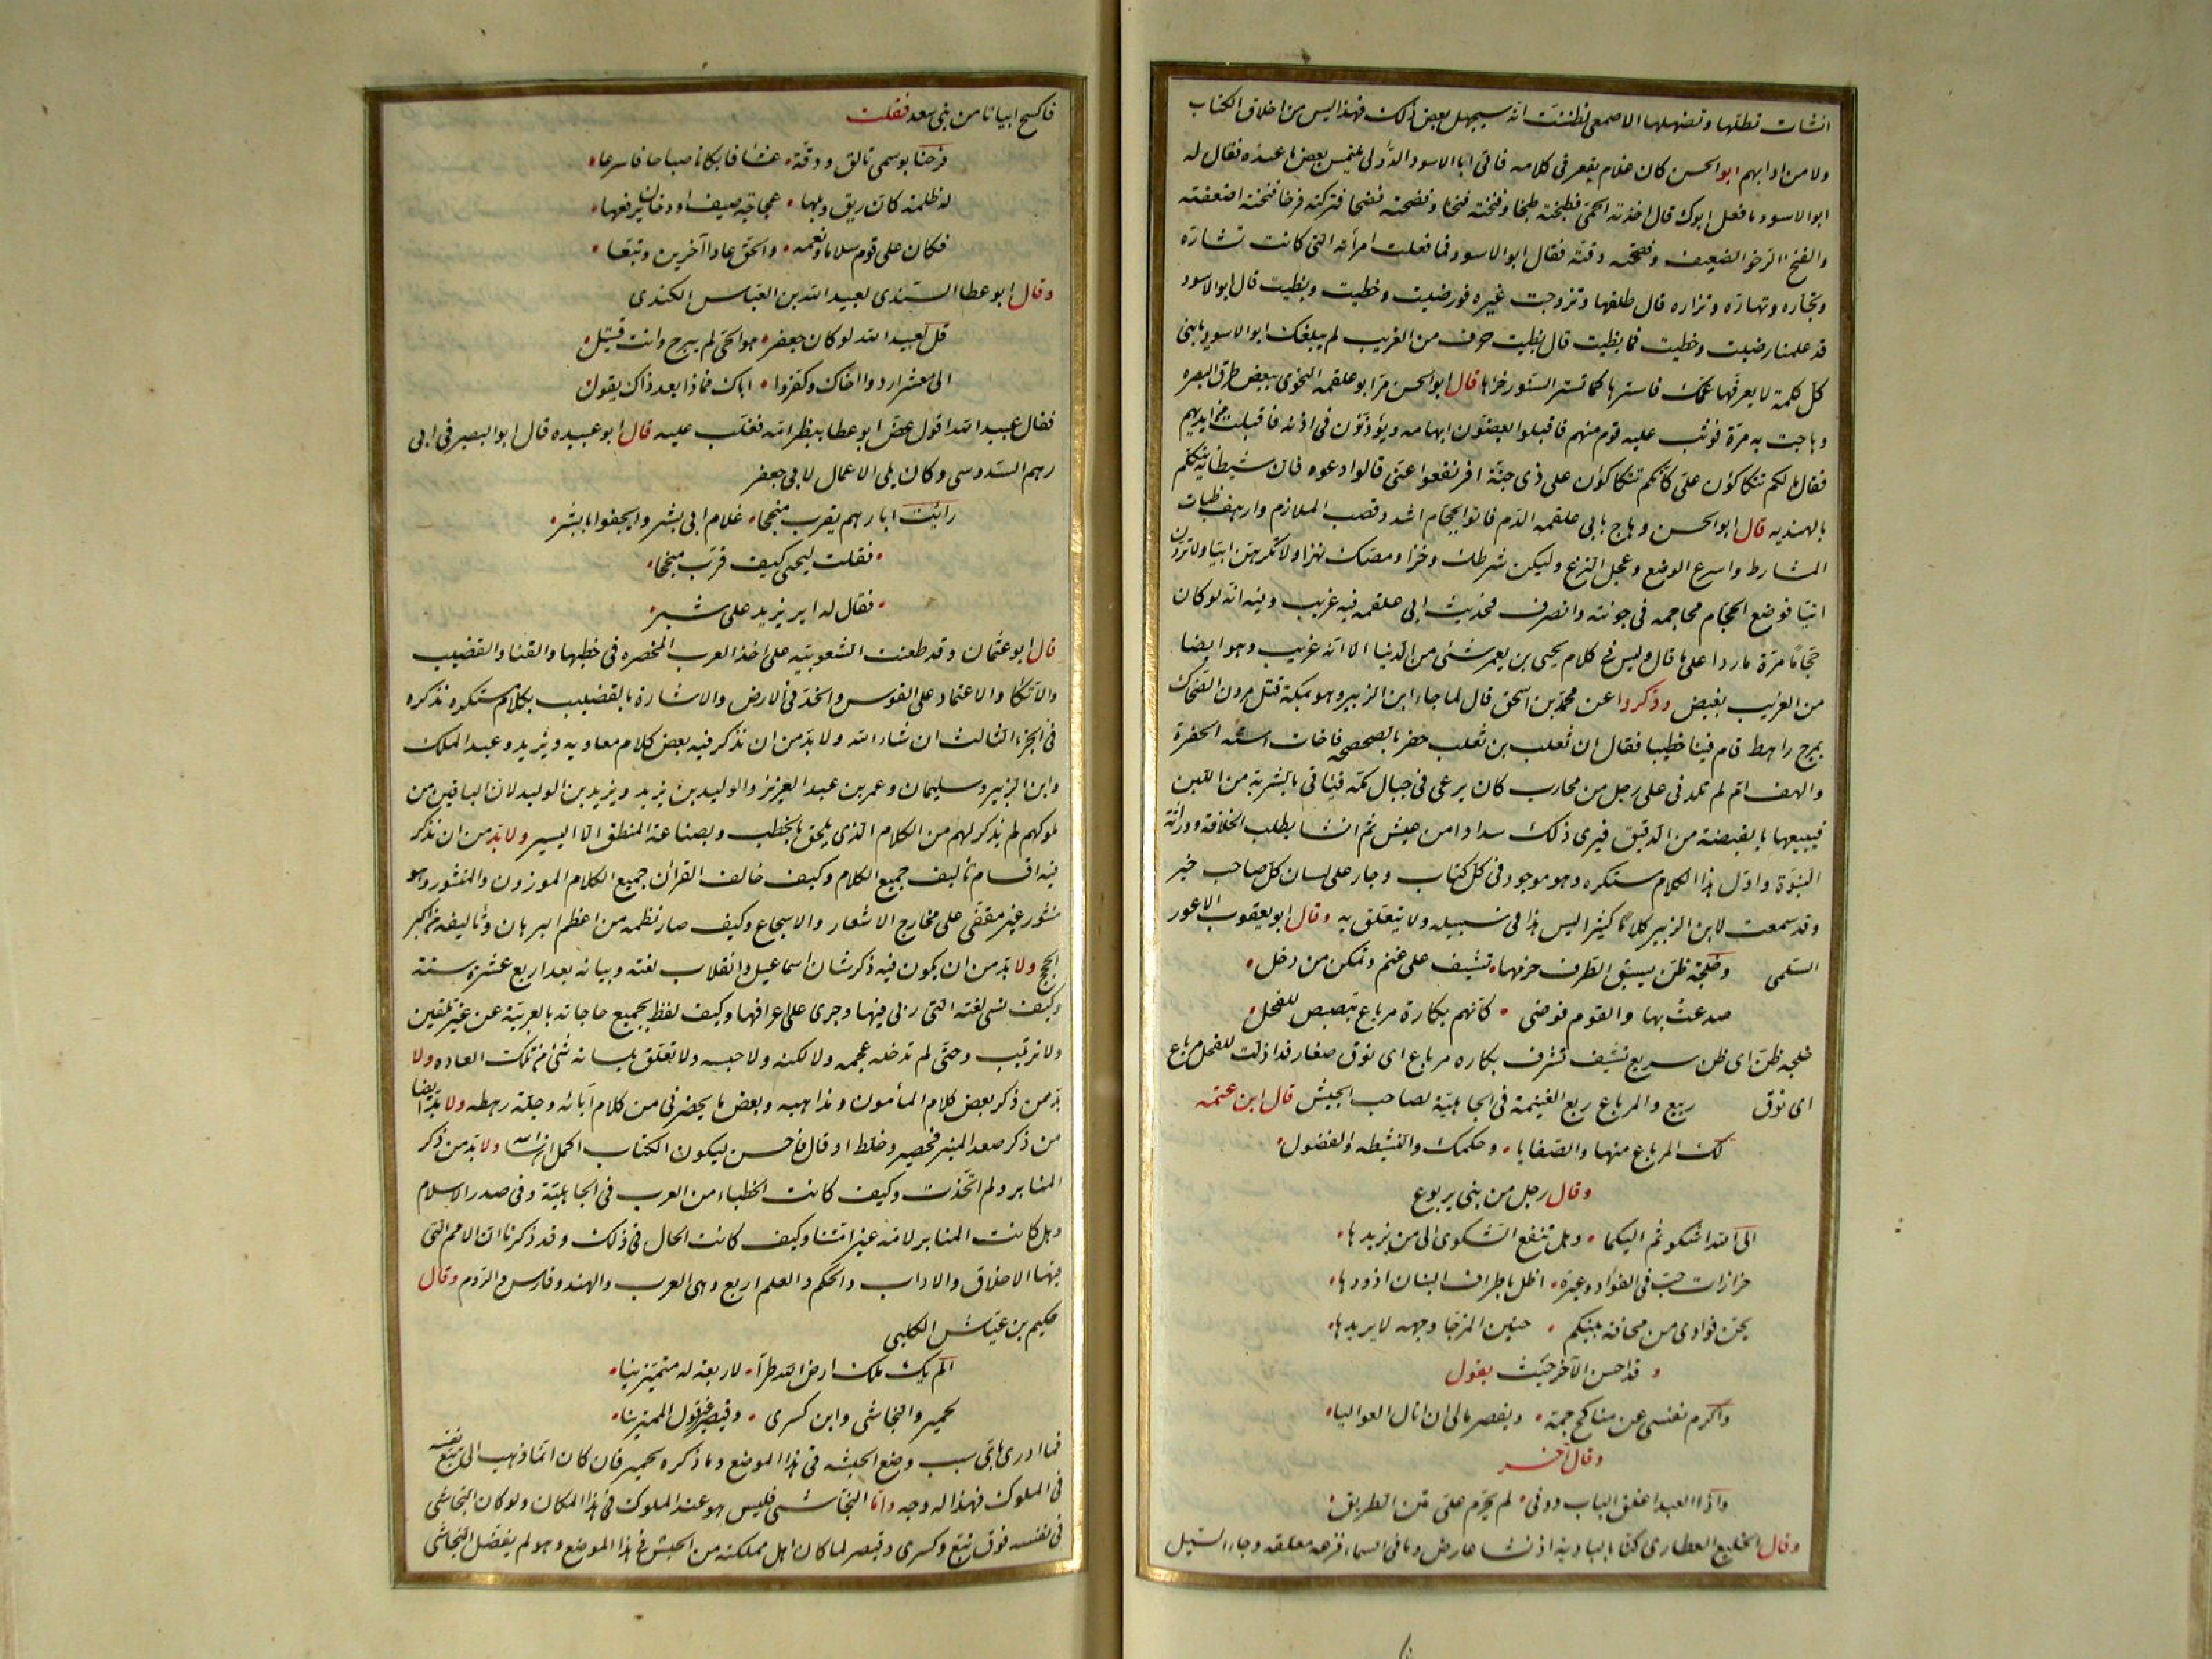 انشات تطلها وتضهلها الاصمعى لظننت انه سيجهل بعض ذلك فهذا ليس من اخلاق الكتاب
ولا من ادابهم ابو الحسن كان غلام يقعر فى كلامه فاتى ابا الاسود الدؤلى يلتمس بعض ما عنده فقال له
ابو الاسود ما فعل ابوك قال اخذته الحمى فطبخته طبخا وفنخته فنخا وفضحته فضحا فتركته فرخا فنخته اضعفته
والفنخ الرخو الضعيف وفضحته دقته فقال ابو الاسود فما فعلت امرأته التى كانت تشاره
وتجاره وتهاره وتزاره قال طلقها وتزوجت غيره فرضيت وحظيت وبظيت قال ابو الاسود
قد علمنا رضيت وحظيت فما بظيت قال بظيت حرف من الغريب لم يبلغك ابو الاسود يا بنى
كل كلمة لا يعرفها عمك فاسترها كما تستر السنور خراها قال ابو الحسن مر ابو علقمه النحوى ببعض طرق البصره
وهاجت به مرة فوثب عليه قوم منهم فاقبلوا يعضون ابهامه ويؤذنون فى اذنه فافلت من ايديهم
فقال ما لكم تتكاكؤن على كانكم تتكاكؤن على ذى جنة افرنقعوا عنى قالوا دعوه فان شيطانه يتكلم
بالهنديه قال ابو الحسن وهاج بابى علقمه الدم فاتوا بحجام اشدد قصب الملازم وارهف ظبات
المشارط واسرع الوضع وعجل النزع وليكن شرطك وخزا ومصك نهزا ولا تكرهن ابيا ولا تردن
اتيا فوضع الحجام محاجمه فى جونته وانصرف فحديث ابى علقمه فيه غريب وفيه انه لو كان
حجاما مرة ما زاد على ما قال وليس فى كلام يحيى بن يعمر شئ من الدنيا الا انه غريب وهو ايضا
من الغريب بغيض وذكروا عن محمد بن اسحق قال لما جاء ابن الزبير وهو بمكة قتل مروان الضحاك
بمرج راهط قام فينا خطيبا فقال ان ثعلب بن ثعلب حفر بالصحصحه فاخات استه الحفرة
والهف ام لم تلدنى على رجل من محارب كان يرعى فى جبال مكه فياتى بالشربة من اللبن
فيبيعها بالقبضة من الدقيق فيرى ذلك سدادا من عيش ثم انشا يطلب الخلافة ووراثة
النبوة واول هذا الكلام مستكره وهو موجود فى كل كتاب وجار على لسان كل صاحب خبر
وقد سمعت لابن الزبير كلاما كثيرا ليس هذا فى سبيله ولا يتعلق به وقال ابو يعقوب الاعور
السلمى وخلجة ظن يسبق الطرف حزمها تشيف على غنم وتمكن من دخل
صدعت بها والقوم فوضى كانهم بكارة مرباع تبصبص للفحل
خلجه ظن اى ظن سريع تشيف تشرف بكاره مرباع اى نوق صغار قد اذلت للفحل مرباع
اى نوق ربيع والمرباع ربع الغنيمة فى الجاهلية لصاحب الجيش قال ابن عتمه
لك المرباع منها والصفايا وحكمك والنشيطه والفضول
وقال رجل من بنى يربوع
الى الله اشكو ثم اليكما وهل تنفع الشكوى الى من يزيدها
حزازات حب فى الفؤاد وعبرة اظل باطراف البنان اذودها
يحن فؤادى من مخافة بينكم حنين المزجا وجهه لا يريدها
وقد احسن الآخر حيث يقول
واكرم نفسى عن مناكح جمة ويقصر مالى ان انال العواليا
وقال آخر
واذا العبد اغلق الباب دونى لم يحرم على متن الطريق
وقال الخليع العطارى كنا بالبادية اذ نشا عارض وما فى السماء قزعه معلقه وجاء السيل
فاكتسح ابياتا من بنى سعد فقلت
فرحنا بوسمى تالق ودقه عشا فابكانا صباحا فاسرعا
له ظلمة كان ريق وبلها عجاجة صيف او دخان يرفعها
فكان على قوم سلاما ونعمه والحق عادا آخرين وتبعا
وقال ابو عطا السندى لعبيد الله بن العباس الكندى
قل لعبيد الله لو كان جعفر هو الحى لم يبرح وانت قتيل
الى معشر اردوا اخاك وكفروا اباك فماذا بعد ذاك يقول
فقال عبيد الله اقول عض ابو عطا ببظر امه فغلب عليه قال ابو عبيده قال ابو البصير فى ابى
رهم السدوسى وكان يلى الاعمال لابى جعفر
رأيت ابا رهم يقرب منجحا غلام ابى بشر ويجفو ابا بشر
فقلت ليحيى كيف قرب منجحا
فقال له اير يزيد على شبر
قال ابو عثمان وقد طعنت الشعوبيه على اخذ العرب المخصره فى خطبها والقنا والقضيب
والاتكا والاعتماد على القوس والخد فى الارض والاشارة بالقضيب بكلام مستكره نذكره
فى الجزء الثالث ان شاء الله ولا بد من ان نذكر فيه بعض كلام معاويه ويزيد وعبد الملك
وابن الزبير وسليمان وعمر بن عبد العزيز والوليد بن يزيد ويزيد بن الوليد لان الباقين من
ملوكهم لم يذكر لهم من الكلام الذى يلحق بالخطب وبصناعة المنطق الا اليسير ولا بد من ان نذكر
فيه اقسام تأليف جميع الكلام وكيف خالف القرآن جميع الكلام الموزون والمنثور وهو
منثور غير مقفى على مخارج الاشعار والاسجاع وكيف صار نظمه من اعظم البرهان وتاليفه من اكبر
الحجج ولا بد من ان يكون فيه ذكر شان اسماعيل وانقلاب لغته وبيانه بعد اربع عشرة سنة
وكيف نسى لغته التى ربى فيها وجرى على اعراقها وكيف لفظ بجميع حاجاته بالعربية عن غير تلقين
ولا ترتيب وحتى لم تدخله عجمه ولا لكنه ولا حبسه ولا تعلق بلسانه شئ من تلك العاده ولا
بد من ذكر بعض كلام المأمون ومذاهبه وبعض ما يحضرنى من كلام آبائه وجلة رهطه ولا بد ايضا
من ذكر صعد المنبر فحصر وخلط او قال فاحسن ليكون الكتاب اكمل ان شاء الله ولا بد من ذكر
المنابر ولم اتخذت وكيف كانت الخطباء من العرب فى الجاهلية وفى صدر الاسلام
وهل كانت المنابر لامة غير امتنا وكيف كانت الحال فى ذلك وقد ذكرنا ان الامم التى
فيها الاخلاق والاداب والحكم والعلم اربع وهى العرب والهند وفارس والروم وقال
حكيم بن عياش الكلبى
الم يك ملك ارض الله طرا لاربعة له متميزينا
لحمير والنجاشى وابن كسرى وقيصر غير قول الممترينا
فما ادرى باى سبب وضع الحبشه فى هذا الموضع وما ذكره لحمير فان كان انما ذهب الى تبع نفسه
فى الملوك فهذا له وجه واما النجاشى فليس هو عند الملوك فى هذا المكان ولو كان النجاشى
فى نفسه فوق تبع وكسرى وقيصر لما كان اهل مملكته من الحبش فى هذا الموضع وهو لم يفضل النجاشى